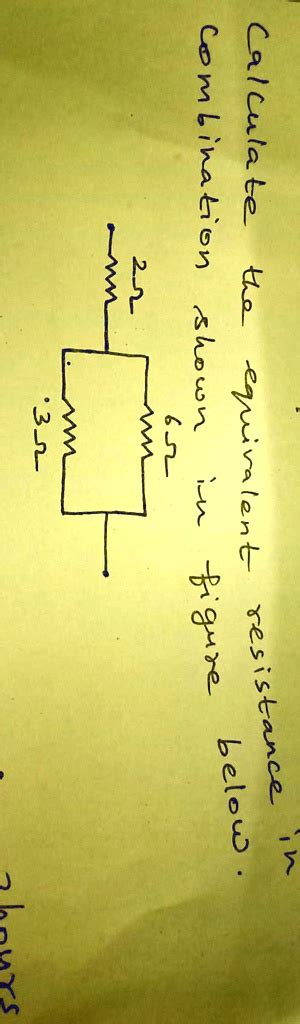 Calculate the equivalent resistance in
combination shown in figure below.
6Ω
2Ω
3Ω
hours